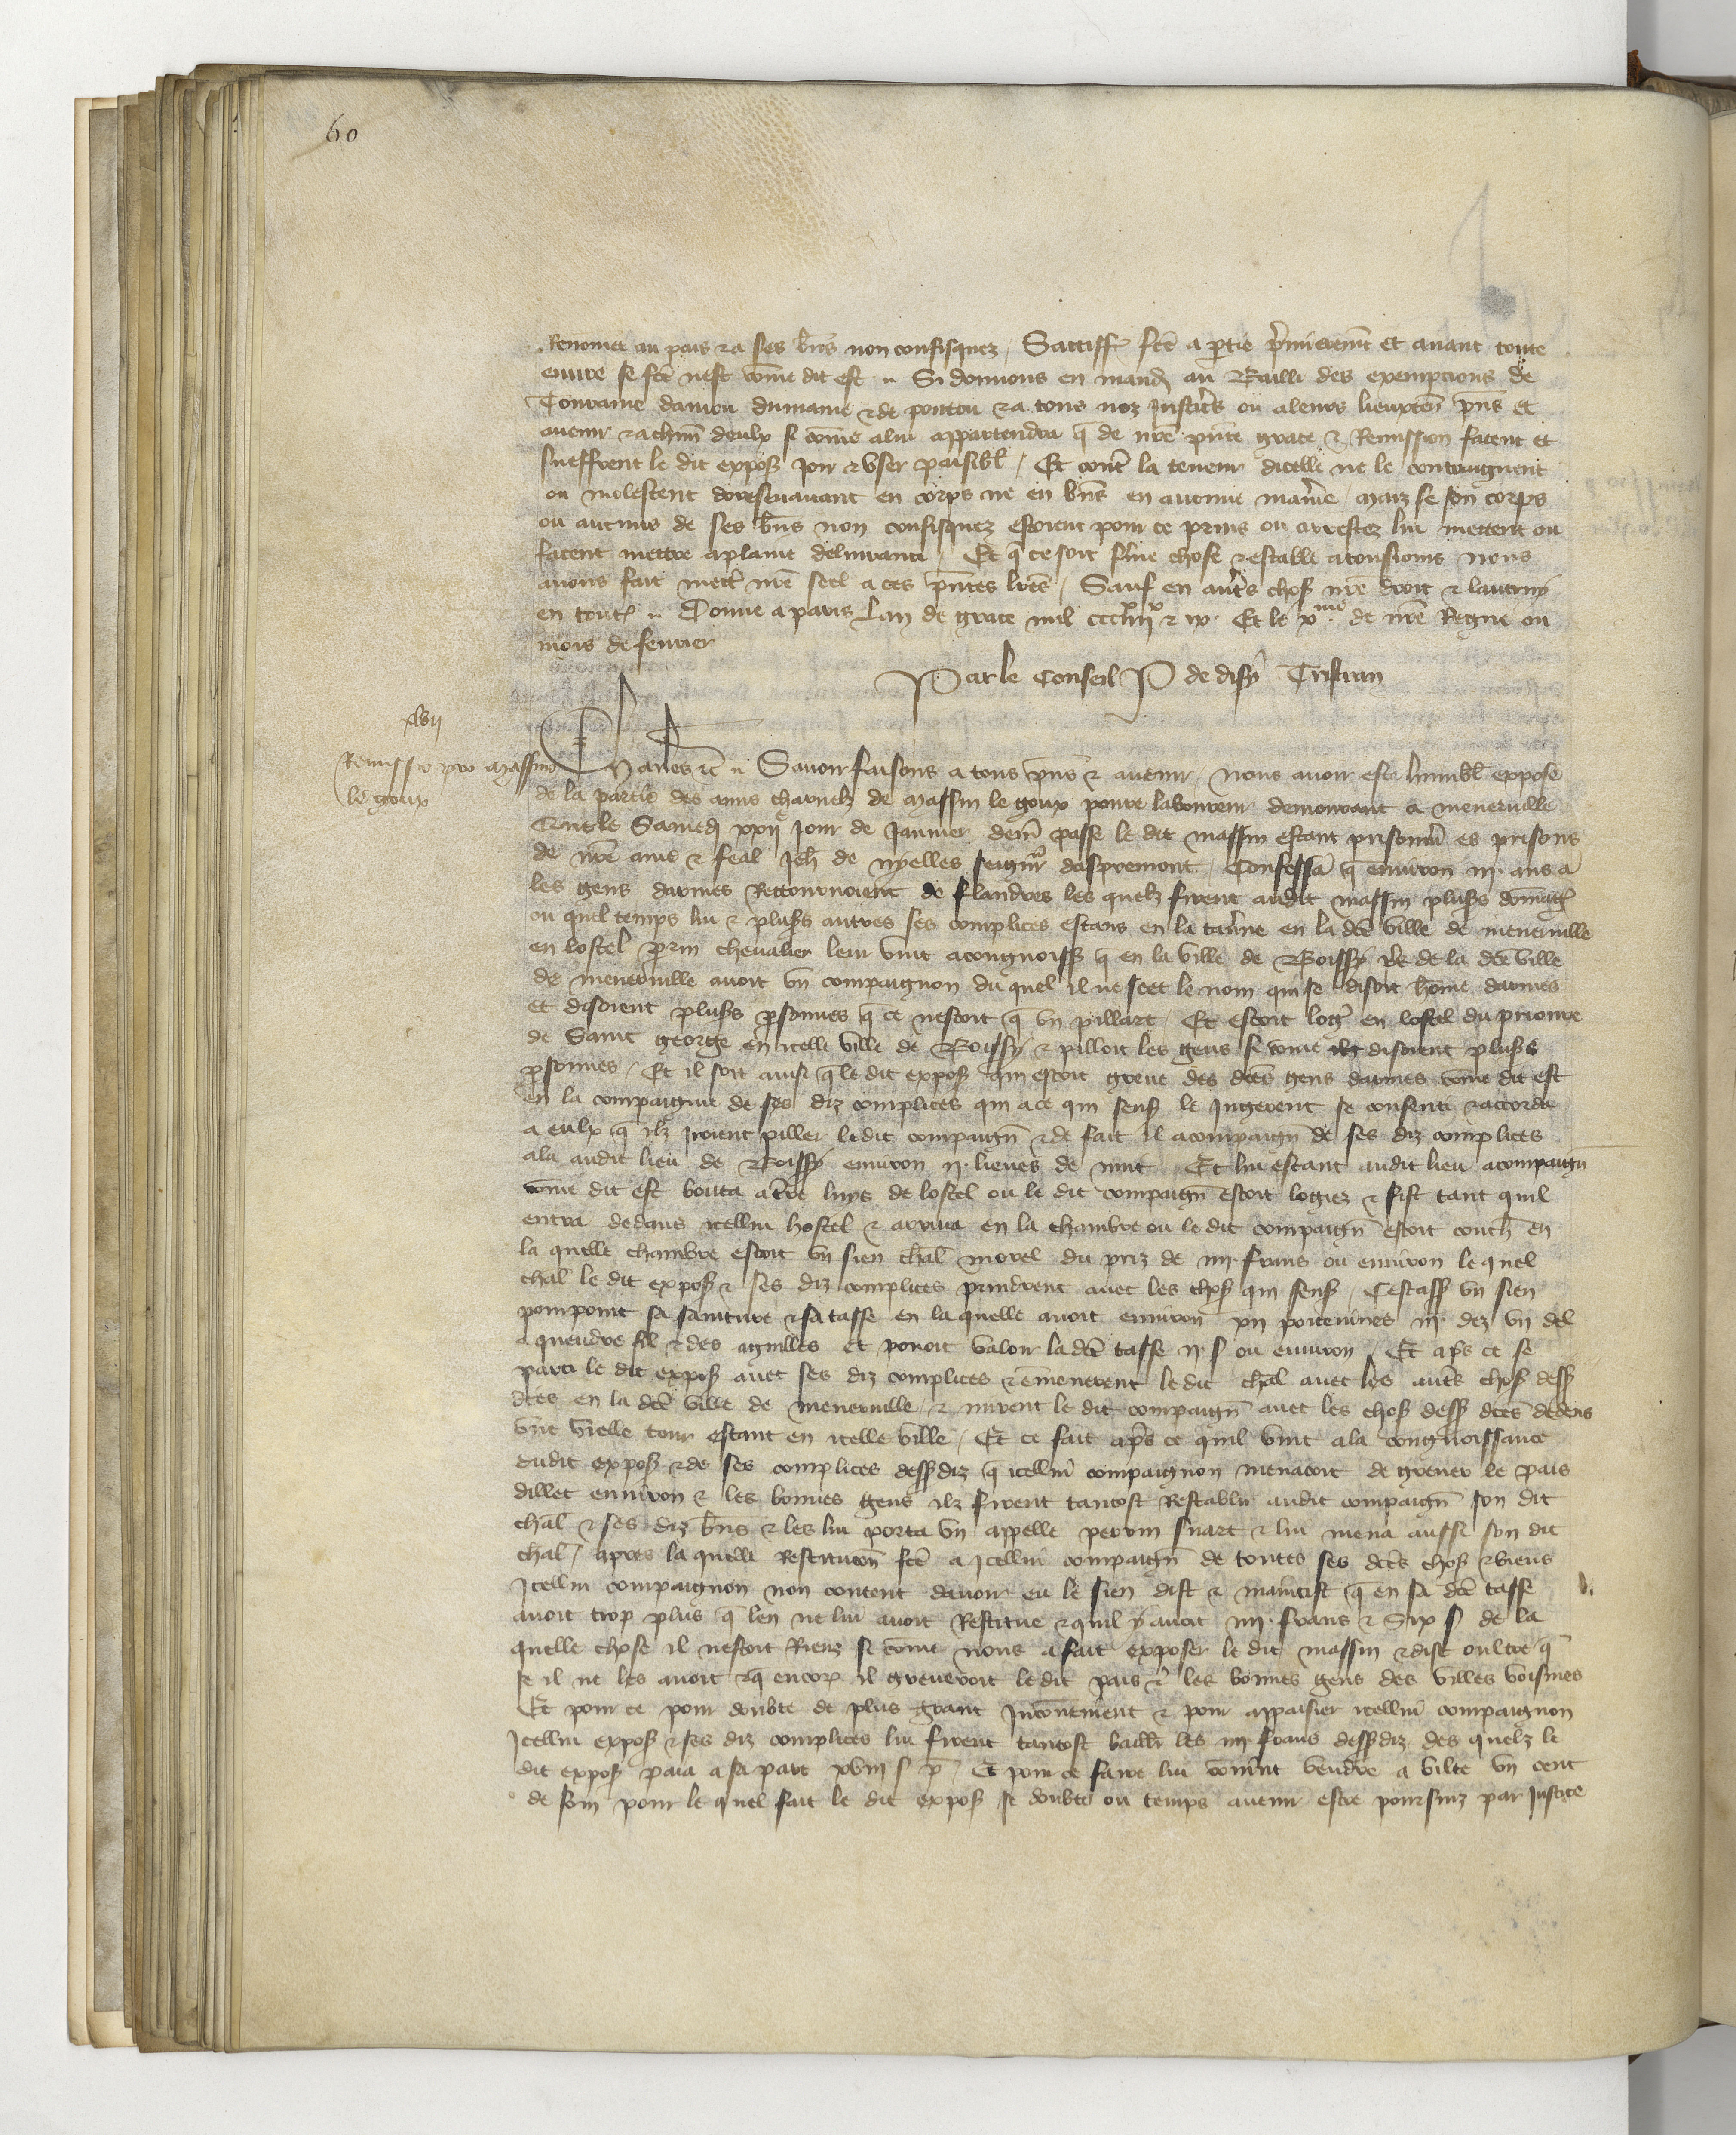 60
Renomee au pais & a ses bn̄s non confisquez / Satiffꝯ fcē a ptie p̄mierem̄t et avant toute
euvre se fcē nest com̄e dit est Si donnons en mand au Bailli des exempcions de
Touraine danjou dumaine & de poitou & a tous noz justic̄rs ou a leurs lieuxten̄ pn̄s et
avenir & a chūn deulx si com̄e a lui appartendra q̄ de nr̄e pn̄te grace & Remission facent et
sueffrent le dit expoſ joir & user paisibl̄ / Et contr̄ la teneur dicelle ne le contraignent
ou molestent doresenavant en corps ne en bn̄s en aucune maīe maiz se son corps
ou aucuns de ses bn̄s non confisquez estoient pour ce prins ou arrestez lui mettent ou
facent mettre aplaine delivrance Et q̄ ce soit ferme chose & estable atousjours nous
avons fait mettr̄ nr̄e seel a ces pn̄tes lrēs / Sauf en autr̄s choſ nr̄e droit & lautruy
en toutꝭ Donne a paris Lan de grace mil ccciiiixx & ix. Et le xme. de nr̄e Regne ou
mois de fevrier
Par le Conseil P de disy Tristran
xlvii
Remissio pro Massino
le goux
Charles etc̄ Savoir faisons a tous pn̄s & avenir nous avoir este humbl̄ expose
de la partie des amis charnelz de Massin le goux povre laboureur demourant a menerville
Que le Samedi xxije jour de Janvier derr̄ passe le dit massin estant prisonnīr es prisons
de nr̄e ame & feal Jeh̄ de nyelles seignr̄ daspremont Confessa q̄ environ iij. ans a
les gens darmes Rettournoient de flandres les quelz firent audit massin plusſs dommagꝭ
ou quel temps lui & plusſs autres ses complices estans en la tav̄ne en la dcē ville de menerville
en lostel p̄rin chevalier leur vint a congnoissꝭ q̄ en la ville de Boissy pr̄e de la dcē ville
de menerville avoit un compaignon du quel il ne scet le nom qui se disoit hom̄e darmes
et disoient plusſs p̄sonnes q̄ ce nestoit q̄ un pillart / Et estoit logē en lostel du prioure
de Saint george en icelle ville de Boissy & pilloit les gens si com̄e disoient plusſs
p̄sonnes / Et il soit ainsi q̄ le dit expoſ qui estoit greve des dcēs gens darmes com̄e dit est
en la compaignie de ses diz complices qui a ce qui sensꝭ le Ingererent se consenti & accorda
a eulx q̄ ilz iroient piller ledit compaign̄ & de fait il acompaign̄ de ses diz complices
ala audit lieu de Boissy environ ij. lieues de nuit Et lui estant audit lieu acompaign̄
com̄e dit est bouta a tr̄e luys de lostel ou le dit compaign̄ estoit logiez & fist tant quil
entra dedans icellui hostel & arriva en la chambre ou le dit compaign̄ estoit couch̄ en
la quelle chambre estoit un sien chal̄ morel du priz de iiij. frans ou environ le quel
chal̄ le dit expoſ & ses diz complices prindrent avec les choſ qui sensꝭ / Cestassꝭ un sien
pourpoint sa sainture & sa tasse en la quelle avoit environ xij poitevines iij. dez un del
a queudre fil & des aguilles et povoit valoir la dcē tasse ij. s ou environ / Et ap̄s ce se
parti le dit expoſ avec ses diz complices & emmenerent le dit chal̄ avec les autr̄s choſ dessꝭ
dcēs en la dcē ville de menerville & mirent le dit compaign̄ avec les choſ dessꝭ dcēs dedens
une vielle tour estant en icelle ville / Et ce fait ap̄s ce quil vint a la congnoissance
dudit expoſ & de ses complices dessꝭdiz q̄ icellui compaignon menacoit de grever le pais
dillec environ & les bonnes gens ilz firent tantost Restablir audit compaign̄ son dit
chal̄ & ses diz bn̄s & les lui porta un appelle perrin suart & lui mena aussi son dit
chal̄ / apres la quelle Restitucōn fcē a Icellui compaign̄ de toutes ses dcēs choſ & biens
Icellui compaignon non content davoir eu le sien dist & maintist q̄ en sa dcē tasse
avoit trop plus q̄ len ne lui avoit Restitue & quil y avoit iiij. frans & Six s de la
quelle chose il nestoit Riens si com̄e nous a fait exposer le dit massin & dist oultre q̄
se il ne les avoit & q̄ encorꝭ il greveroit le dit pais & les bonnes gens des villes voisines
Et pour ce pour doubte de plus grant Inconvenient & pour appaisier icellui compaignon
Icellui expoſ & ses diz complices lui firent tantost baillier les iiij frans dessꝭdiz des quelz le
dit expoſ paia a sa part xviij s p̄ / Et pour ce faire lui convint vendre a vilte un cent
de foin pour le quel fait le dit expoſ se doubte ou temps avenir estre poursuiz par justice